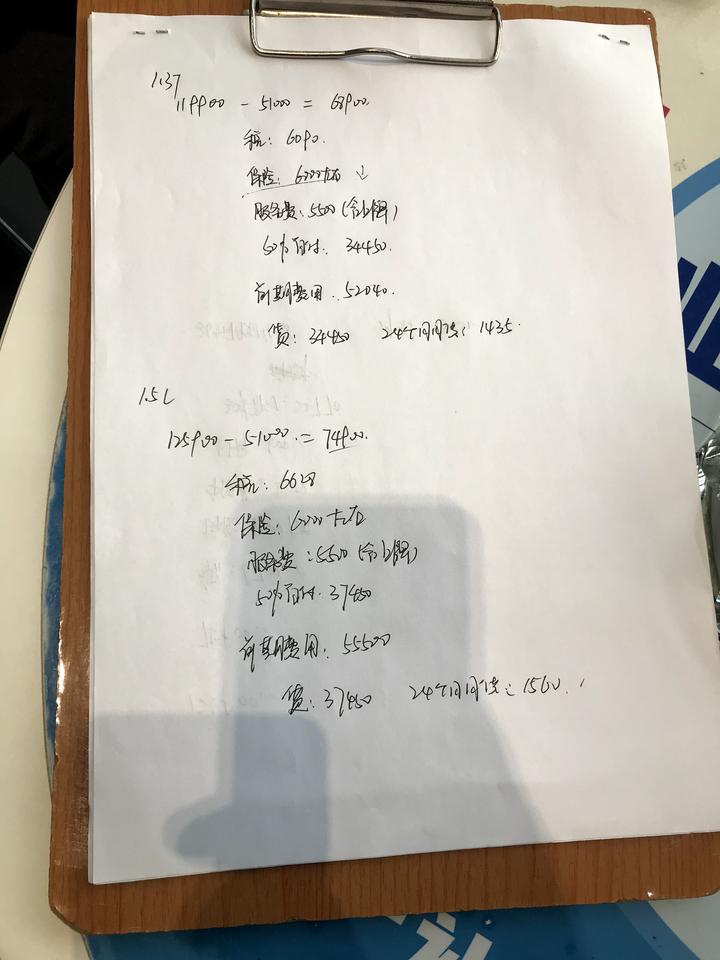 1.3T
119900 - 51000 = 68900.
税: 6090.
保险: 6000左右
服务费: 5500 (含上牌)
50%首付: 34450.
前期费用: 52040.
贷: 34450 24个月月供: 1435.
1.5L
125900 - 51000 = 74900.
税: 6628
保险: 6000左右
服务费: 5500 (含上牌)
50%首付: 37450
前期费用: 55500
贷: 37450 24个月月供: 1560.